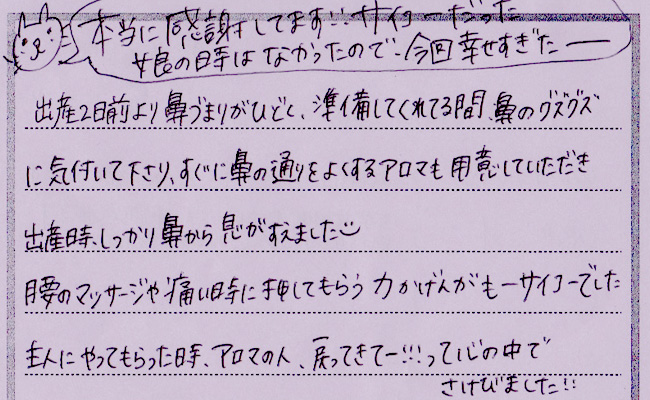 本当に感謝してます!!サイコーだった
娘の日時はなかったので、今回幸せすぎたー
出産2日前より鼻づまりがひどく、準備してくれてる間、鼻のグズグズ
に気付いて下さり、すぐに鼻の通りをよくするアロマも用意していただき
出産時、しっかり鼻から息がすえました
腰のマッサージや痛い時に押してもらう力かげんがもーサイコーでした
主人にやってもらった時、アロマの人、戻ってきてー!!!って心の中で
さけびました!!